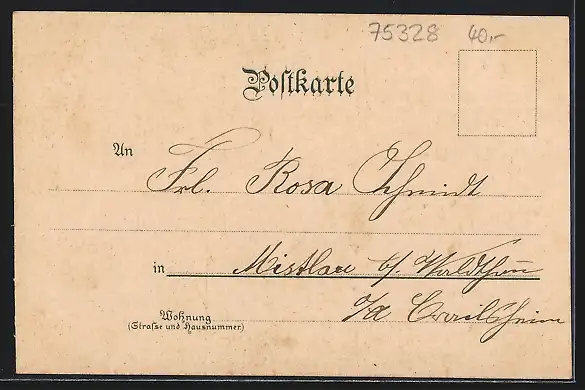 75328 40,-
Postkarte
An
Frl. Rosa Schmidt
in Mistlau b/. Waldthann
o/a Crailsheim
Wohnung
(Strasse und Hausnummer)